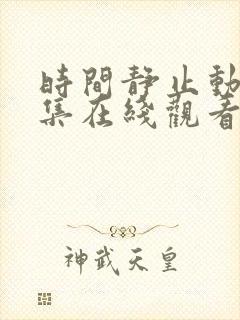 時間靜止動
集在綫觀看
神武天皇